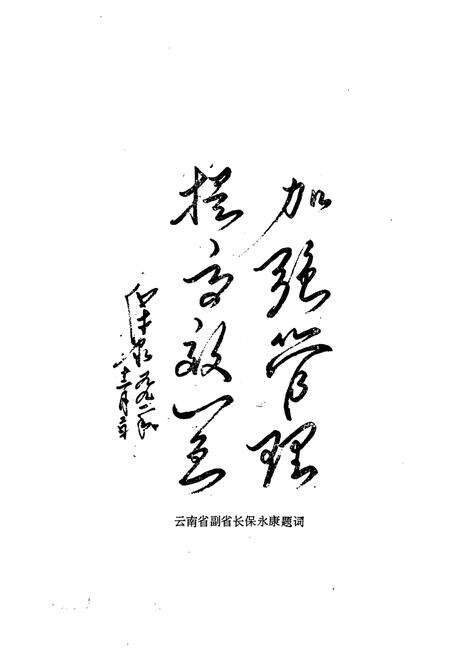 加强管理
提高效益
保永康 一九九二年
十二月
云南省副省长保永康题词